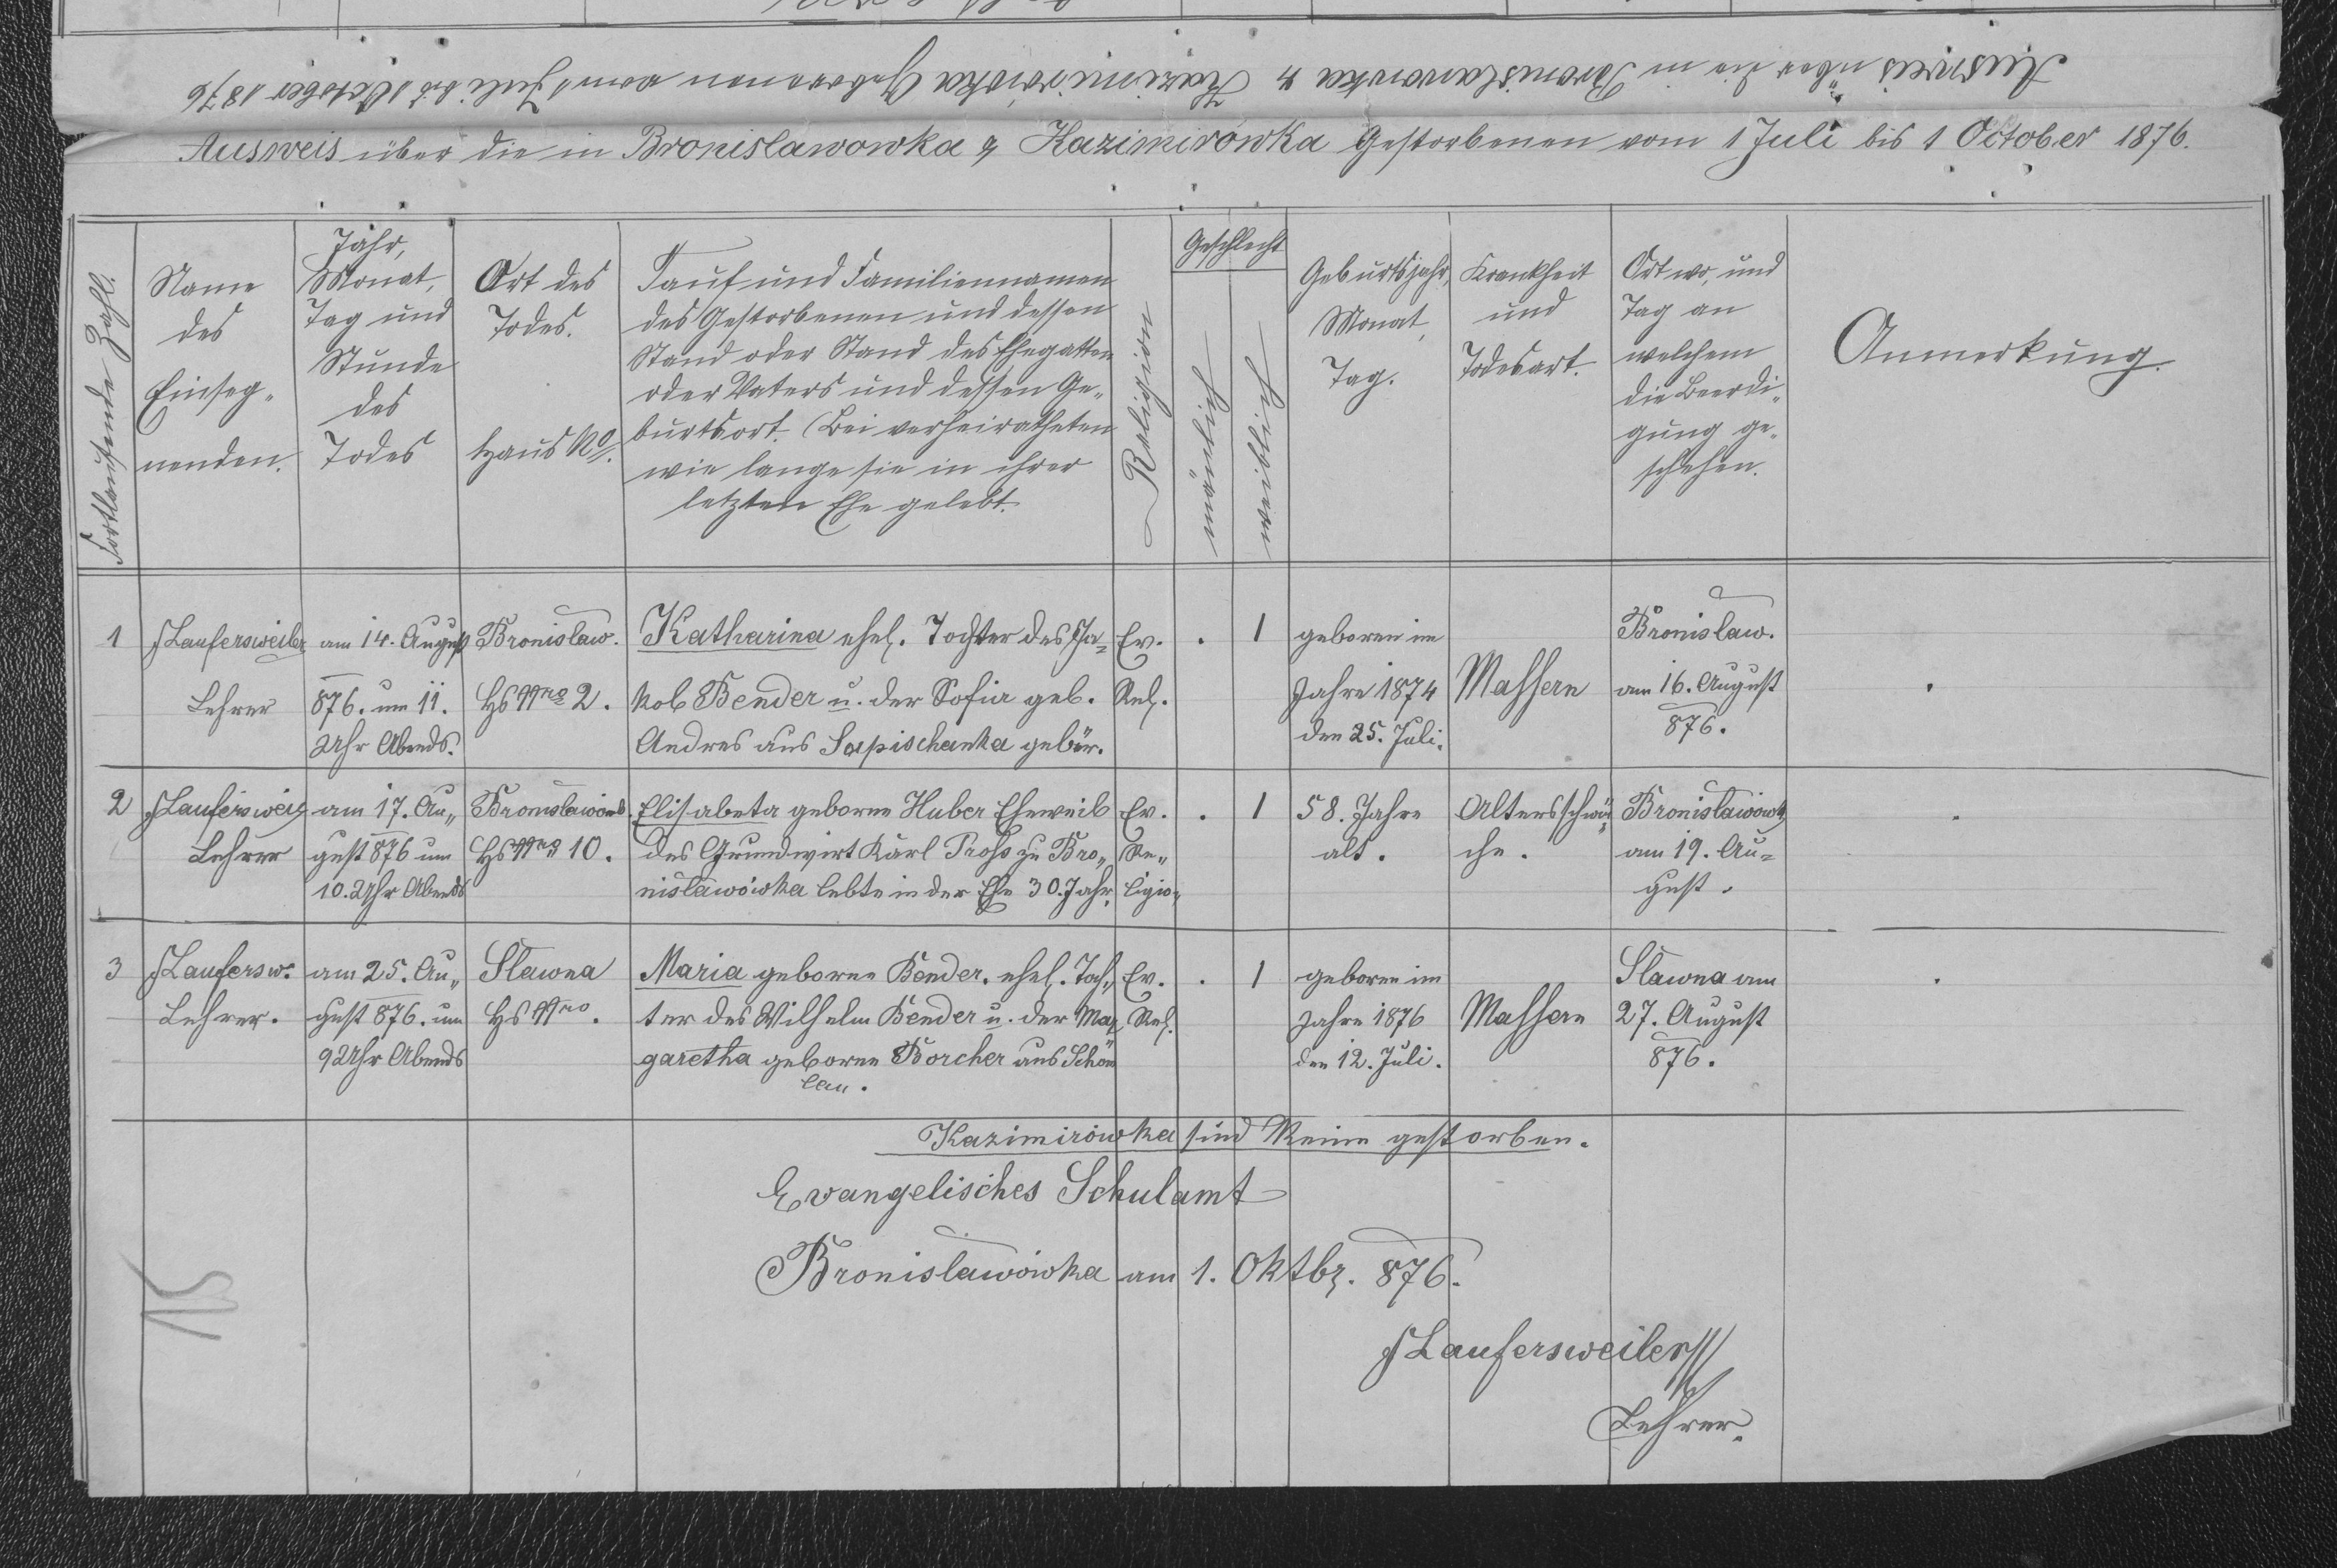 Ausweis über die in Bronislawowka & Kazimirówka Geborenen vom 1 Juli bis 1 October 1876
Ausweis über die in Bronislawowka & Kazimirówka Gestorbenen vom 1 Juli bis 1 October 1876.
Fortlaufende Zahl.
Name
des
Einseg„
nenden.
Jahr,
Monat,
Tag und
Stunde
des
Todes
Ort des
Todes.
Haus No.
Tauf und Familiennamen
des Gestorbenen und dessen
Stand oder Stand des Ehegatten
oder Vaters und dessen Ge„
burtsort. (Bei verheiratheten
wie lange sie in ihrer
letzten Ehe gelebt.
Religion
Geschlecht
mänlich
weiblich
Geburtsjahr,
Monat,
Tag.
Krankheit
und
Todesart.
Ort wo, und
Tag an
welchem
die Beerdi„
gung ge„
schehen.
Anmerkung.
1
J Laufersweiler
Lehrer
am 14. August
876. um 11.
Uhr Abends.
Bronislaw.
Hs Nro 2.
Katharina ehel. Tochter des Ja=
kob Bender u. der Sofia geb.
Andres aus Sapischanka gebür.
Ev.
Rel.
. 1
geboren im
Jahre 1874
den 25. Juli.
Massern
Bronislaw.
am 16. August
876.
.
2
J Laufersweil
Lehrer
am 17. Au„
gust 876 um
10. Uhr Abends
Bronislawówk.
Hs Nro 10.
Elisabeta geborne Huber Eheweib
des Grundwirt Karl Pross zu Bro„
nislawówka lebte in der Ehe 30. Jahr.
Ev.
Re„
ligio„
. 1
58. Jahre
alt.
Altersschwä„
che.
Bronislawówk
am 19. Au=
gust.
.
3
J Laufersw.
Lehrer.
am 25. Au„
gust 876. um
9 Uhr Abends
Slawna
Hs Nro.
Maria geborne Bender. ehel. Toch„
ter des Wilhelm Bender u. der Mar
garetha geborne Borcher aus Schön
lau.
Ev.
Rel.
. 1
geboren im
Jahre 1876
den 12. Juli.
Massern
Slawna am
27. August
876.
.
Kazimirówka sind Keine gestorben.
Evangelisches Schulamt
Bronislawówka am 1. Oktbr. 876.
J Laufersweiler
Lehrer.